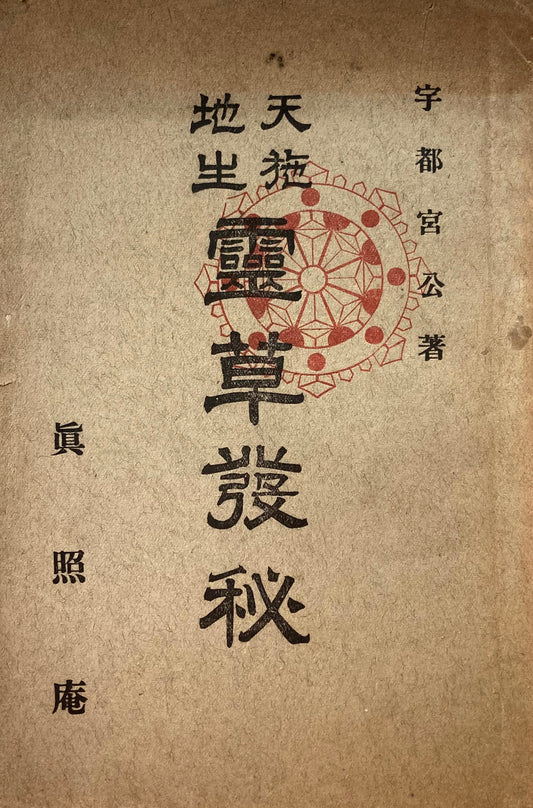 宇都宮公著
天施
地生
靈草發秘
眞照庵